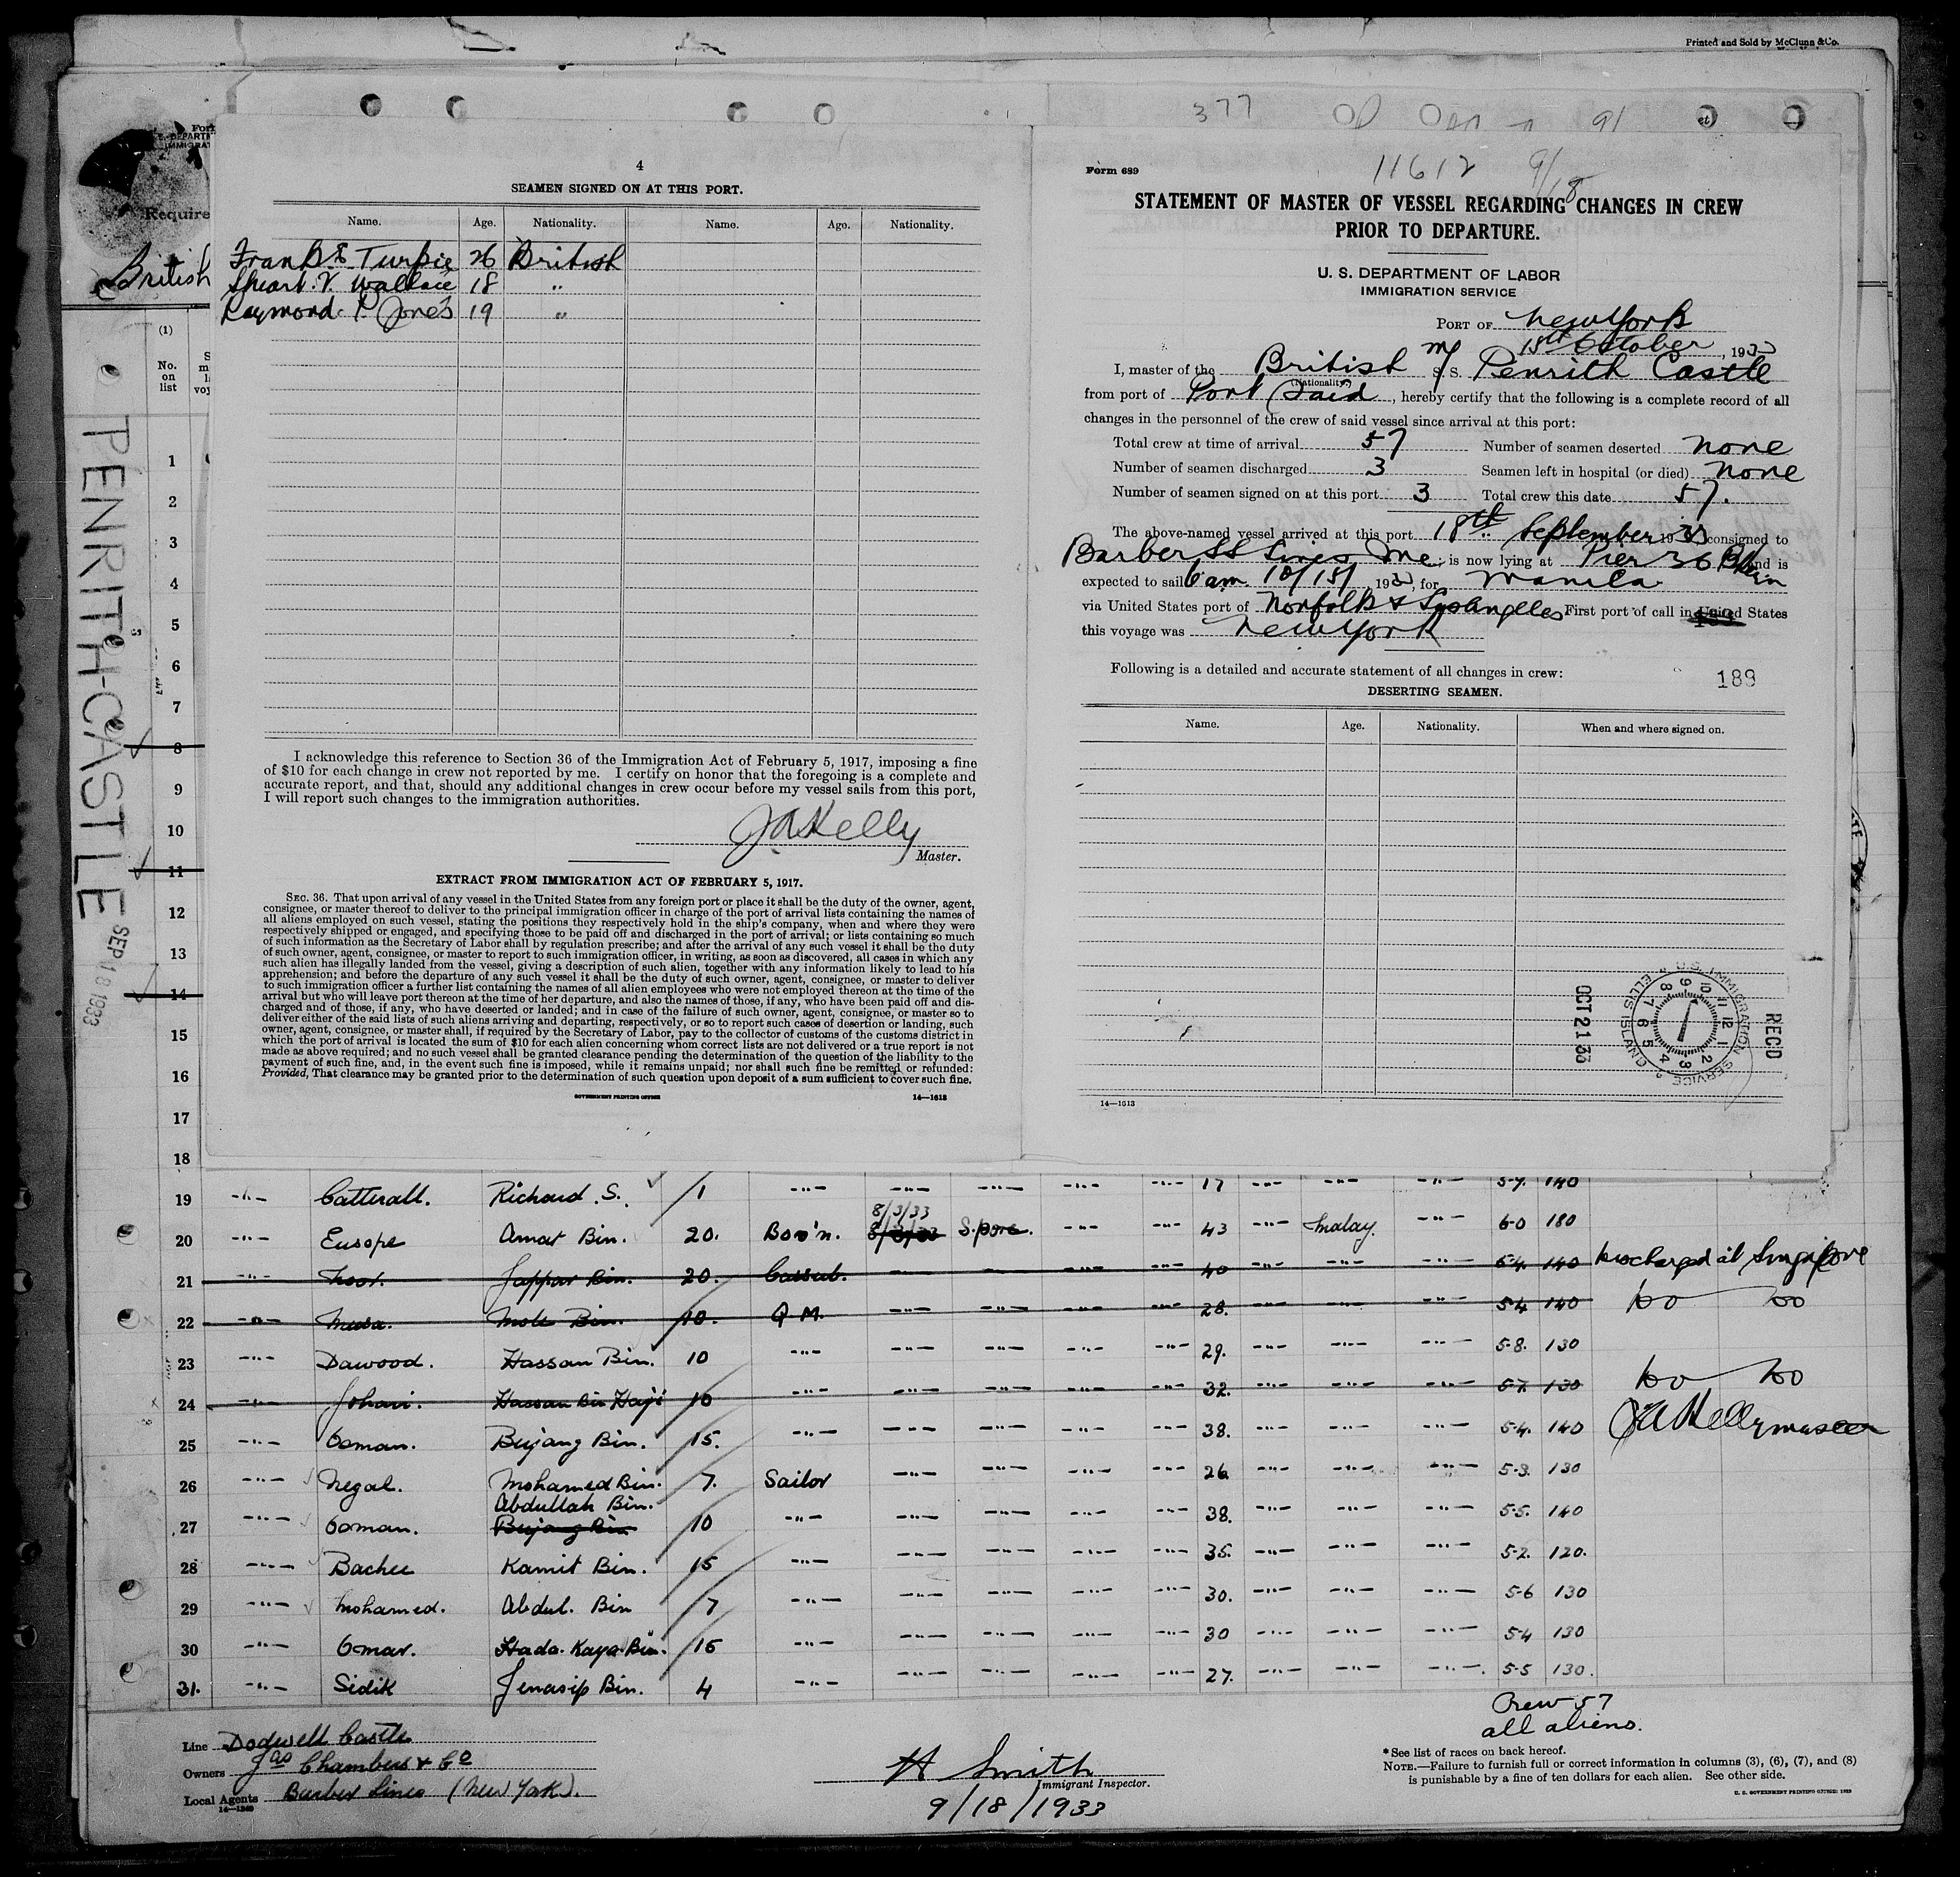 Printed and Sold by McClunn & Co.
377
91
Require
British
(1)
No.
on
list
PENRITH CASTLE
SEP 18 1933
1
2
3
4
5
6
7
8
9
10
11
12
13
14
15
16
17
18
4
SEAMEN SIGNED ON AT THIS PORT.
Name. Age. Nationality. Name. Age. Nationality.
Frank E. Turpie 26 British
Stuart. V. Wallace 18 "
Raymond. P. Jones 19 "
I acknowledge this reference to Section 36 of the Immigration Act of February 5, 1917, imposing a fine
of $10 for each change in crew not reported by me. I certify on honor that the foregoing is a complete and
accurate report, and that, should any additional changes in crew occur before my vessel sails from this port,
I will report such changes to the immigration authorities.
J A Kelly
Master.
EXTRACT FROM IMMIGRATION ACT OF FEBRUARY 5, 1917.
SEC. 36. That upon arrival of any vessel in the United States from any foreign port or place it shall be the duty of the owner, agent,
consignee, or master thereof to deliver to the principal immigration officer in charge of the port of arrival lists containing the names of
all aliens employed on such vessel, stating the positions they respectively hold in the ship's company, when and where they were
respectively shipped or engaged, and specifying those to be paid off and discharged in the port of arrival; or lists containing so much
of such information as the Secretary of Labor shall by regulation prescribe; and after the arrival of any such vessel it shall be the duty
of such owner, agent, consignee, or master to report to such immigration officer, in writing, as soon as discovered, all cases in which any
such alien has illegally landed from the vessel, giving a description of such alien, together with any information likely to lead to his
apprehension; and before the departure of any such vessel it shall be the duty of such owner, agent, consignee, or master to deliver
to such immigration officer a further list containing the names of all alien employees who were not employed thereon at the time of the
arrival but who will leave port thereon at the time of her departure, and also the names of those, if any, who have been paid off and dis-
charged and of those, if any, who have deserted or landed; and in case of the failure of such owner, agent, consignee, or master so to
deliver either of the said lists of such aliens arriving and departing, respectively, or so to report such cases of desertion or landing, such
owner, agent, consignee, or master shall, if required by the Secretary of Labor, pay to the collector of customs of the customs district in
which the port of arrival is located the sum of $10 for each alien concerning whom correct lists are not delivered or a true report is not
made as above required; and no such vessel shall be granted clearance pending the determination of the question of the liability to the
payment of such fine, and, in the event such fine is imposed, while it remains unpaid; nor shall such fine be remitted or refunded:
Provided, That clearance may be granted prior to the determination of such question upon deposit of a sum sufficient to cover such fine.
GOVERNMENT PRINTING OFFICE 14—1613
Form 689
11612 9/18
STATEMENT OF MASTER OF VESSEL REGARDING CHANGES IN CREW
PRIOR TO DEPARTURE.
U. S. DEPARTMENT OF LABOR
IMMIGRATION SERVICE
PORT OF New York
15th October, 1933
I, master of the British M/S.S. Penrith Castle
(Nationality)
from port of Port Said, hereby certify that the following is a complete record of all
changes in the personnel of the crew of said vessel since arrival at this port:
Total crew at time of arrival 57 Number of seamen deserted none
Number of seamen discharged 3 Seamen left in hospital (or died) none
Number of seamen signed on at this port 3 Total crew this date 57.
The above-named vessel arrived at this port 18th September 1933 consigned to
Barber SS Lines Inc; is now lying at Pier 36 Bklyn and is
expected to sail 6 am 10/15/, 1933, for Manila
via United States port of Norfolk & Los Angeles First port of call in United States
this voyage was New York
Following is a detailed and accurate statement of all changes in crew:
189
DESERTING SEAMEN.
Name. Age. Nationality. When and where signed on.
RECD
U.S. IMMIGRATION SERVICE
ELLIS ISLAND
OCT 21 33
14—1613
19 -"- Catterall. Richard. S. 1 -"- -"- -"- -"- -"- 17 -"- -"- -"- 5-7. 140
8/3/33
20 -"- Europe Amat Bin. 20. Bos'n. S.pore. -"- -"- 43 -"- Malay. -"- 6-0 180
21 -"- Noor. Jappar Bin. 20. Cassab. -"- -"- -"- -"- 40 -"- -"- -"- 5-4. 140 Discharged at Singapore
22 -"- Musa. Mole Bin. 10. Q.M. -"- -"- -"- -"- 28. -"- -"- -"- 5-4 140 Do Do
23 -"- Dawood. Hassan Bin. 10 -"- -"- -"- -"- -"- 29. -"- -"- -"- 5-8. 130
24 -"- Johari. Hassan Bin Haji 10 -"- -"- -"- -"- -"- 32. -"- -"- -"- 5-7. 130 Do Do
25 -"- Osman. Bujang Bin. 15. -"- -"- -"- -"- -"- 38. -"- -"- -"- 5-4. 140 J A Kelly master
26 -"- Negal. Mohamed Bin. 7. Sailor -"- -"- -"- -"- 26. -"- -"- -"- 5-3. 130
Abdullah Bin.
27 -"- Osman. Bujang Bin 10 -"- -"- -"- -"- -"- 38. -"- -"- -"- 5-5. 140
28 -"- Bachee Kamit Bin. 15 -"- -"- -"- -"- -"- 35. -"- -"- -"- 5-2. 120.
29 -"- Mohamed. Abdul. Bin 7 -"- -"- -"- -"- -"- 30. -"- -"- -"- 5-6 130
30 -"- Omar. Hada. Kaya Bin. 16 -"- -"- -"- -"- -"- 30 -"- -"- -"- 5-4 130
31. -"- Sidik Jenasip Bin. 4 -"- -"- -"- -"- -"- 27. -"- -"- -"- 5-5 130.
Crew 57
all aliens.
Line Dodwell Castle
Owners Jas Chambers & Co
Local Agents Barber Lines (New York).
H Smith
Immigrant Inspector.
9/18/1933
* See list of races on back hereof.
NOTE.—Failure to furnish full or correct information in columns (3), (6), (7), and (8)
is punishable by a fine of ten dollars for each alien. See other side.